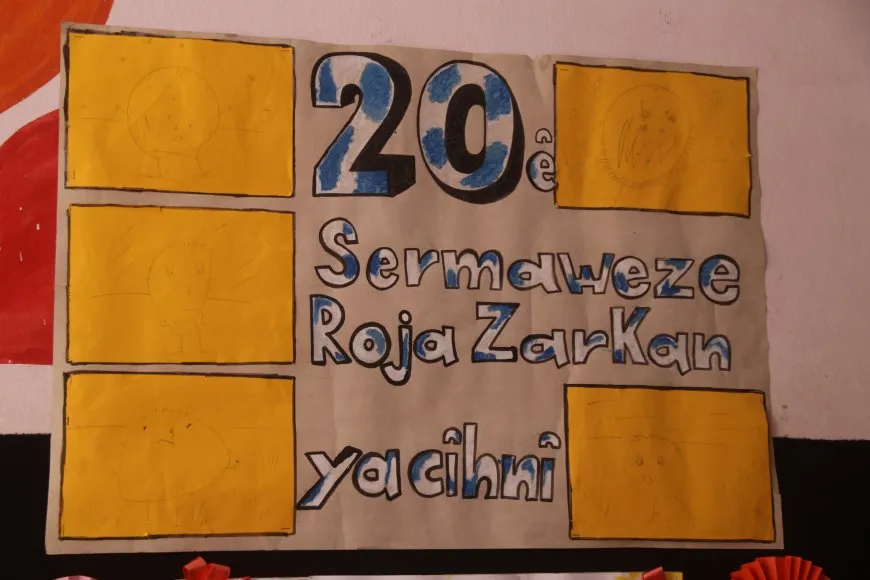 20ê
Sermaweze
Roja ZarKan
ya cîhnî